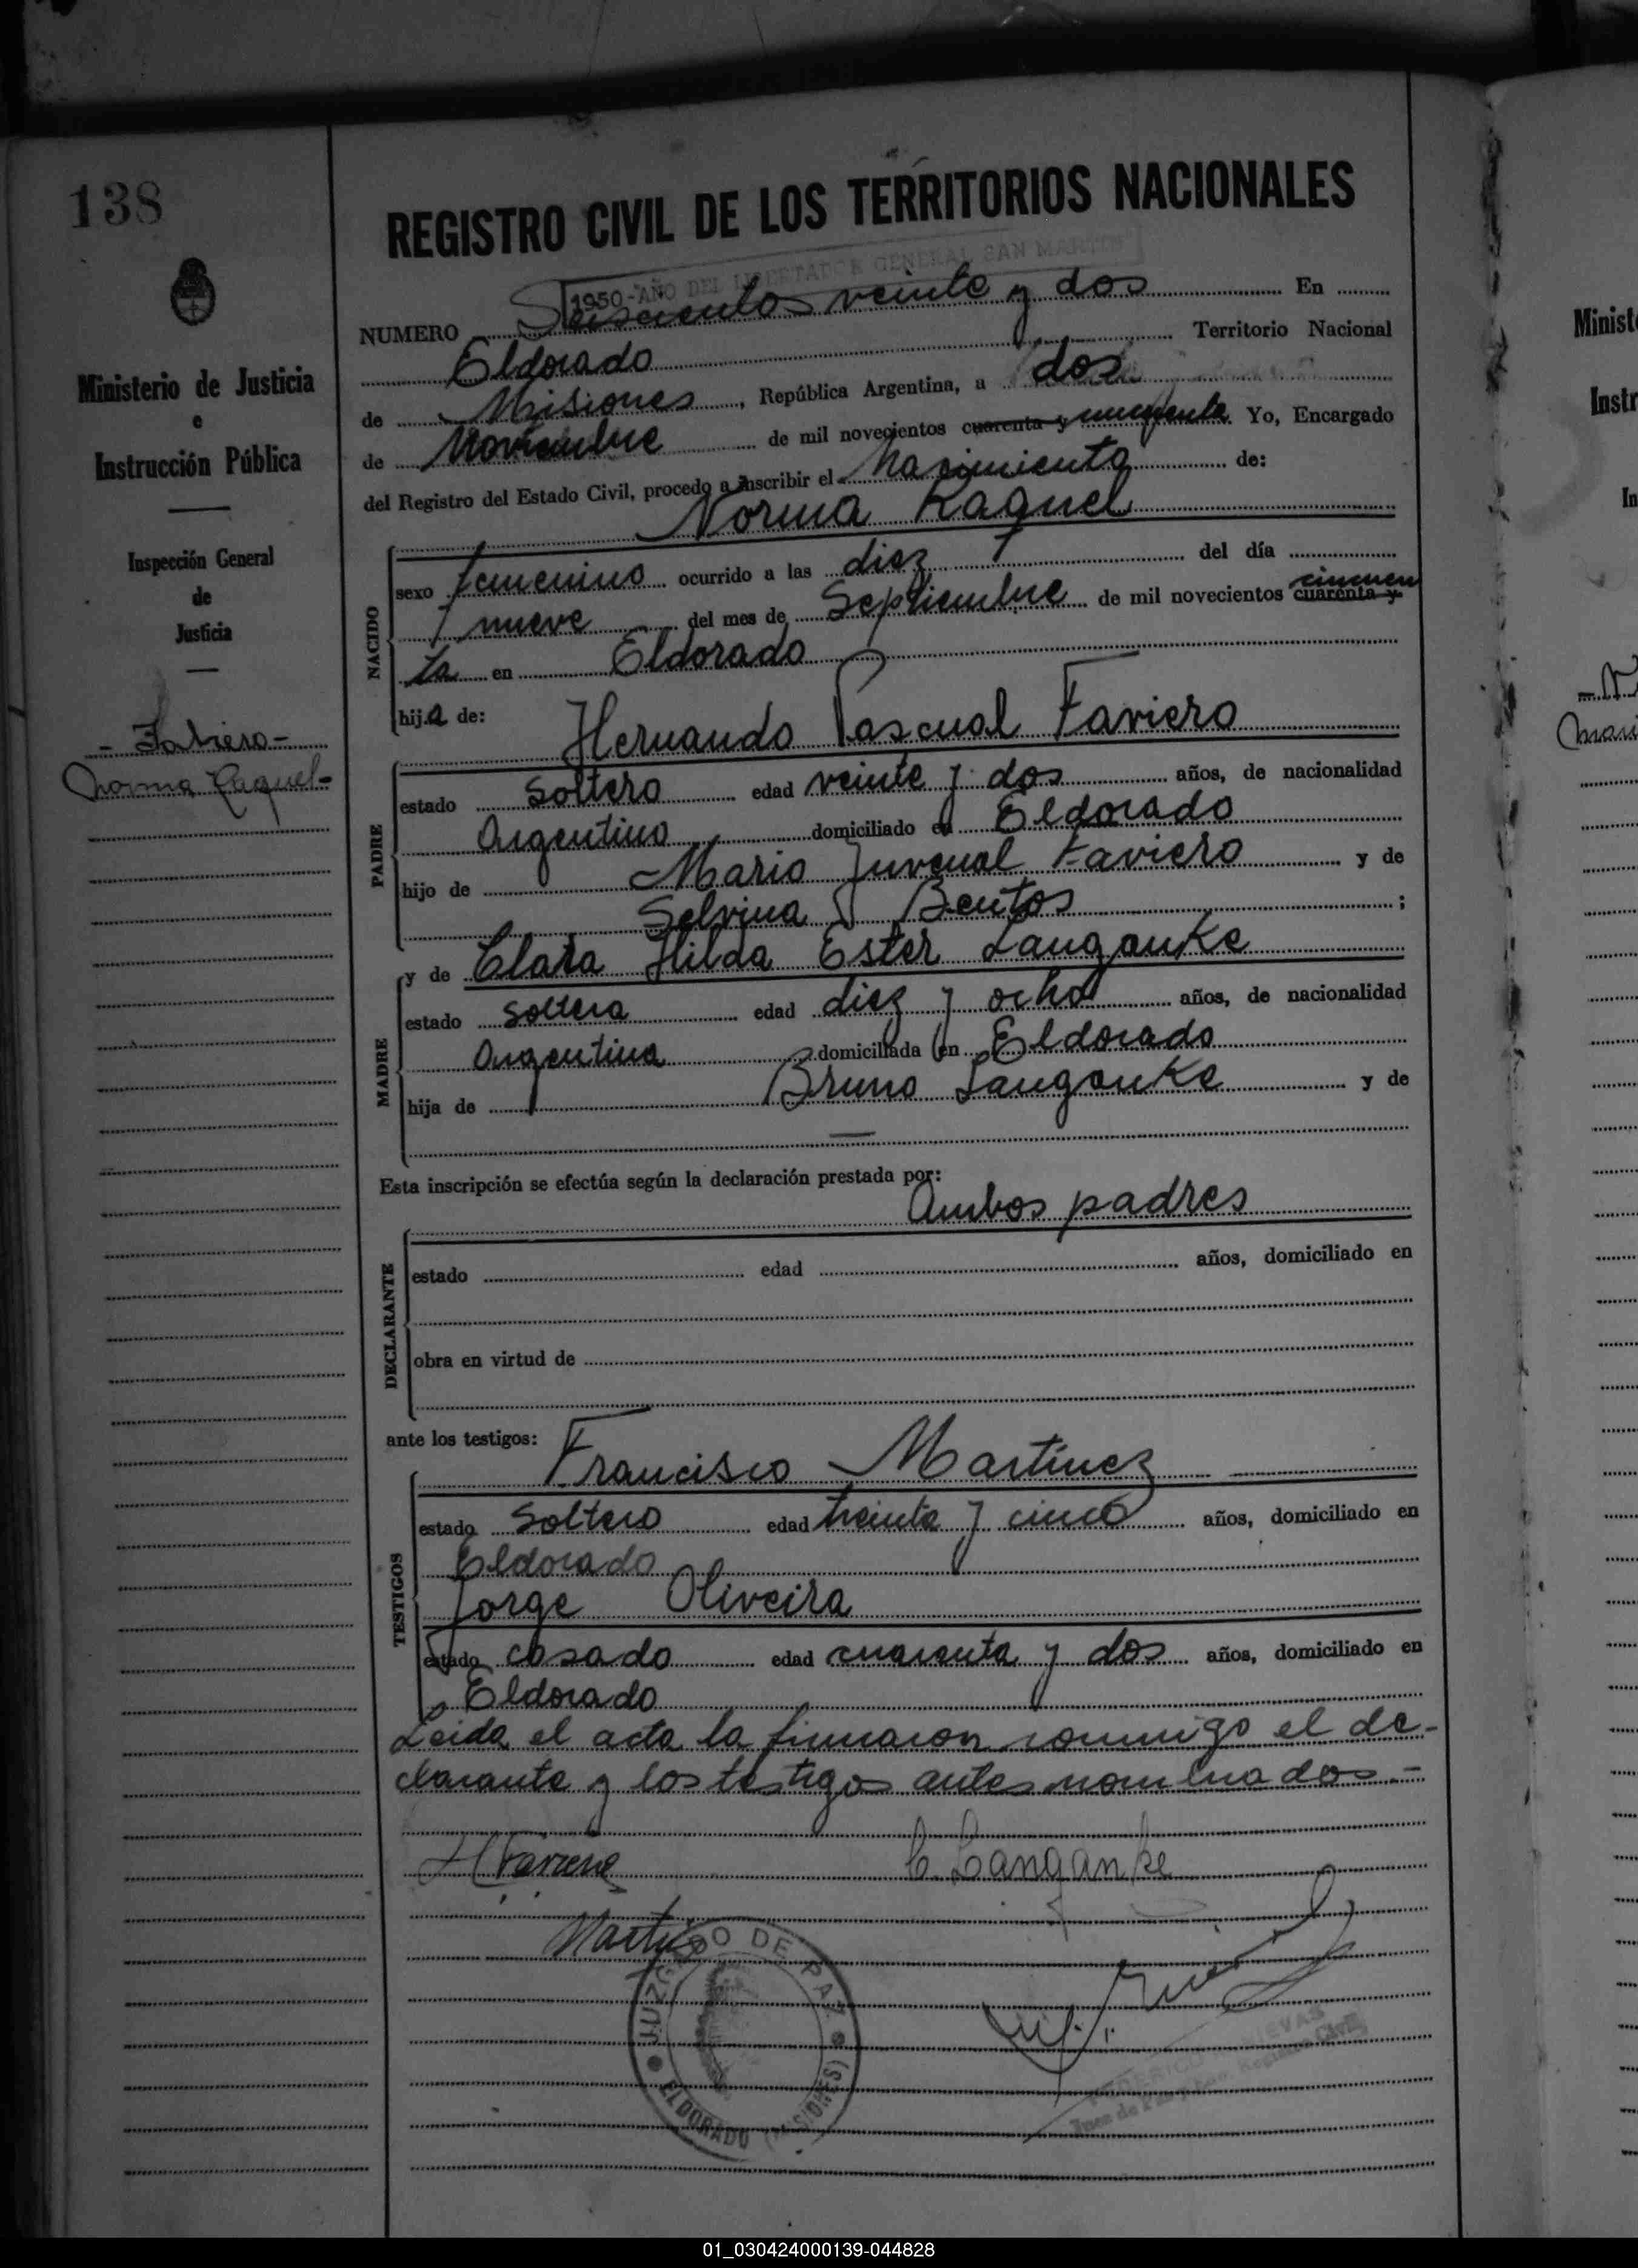 138
REGISTRO CIVIL DE LOS TERRITORIOS NACIONALES
1950-AÑO DEL LIBERTADOR GENERAL SAN MARTIN
NUMERO Seiscientos veinte y dos En
Eldorado Territorio Nacional
de Misiones, República Argentina, a dos
de Noviembre de mil novecientos cuarenta y cincuenta Yo, Encargado
del Registro del Estado Civil, procedo a inscribir el nacimiento de:
Norma Raquel
NACIDO
sexo femenino ocurrido a las diez del día
nueve del mes de Septiembre de mil novecientos cuarenta y cincuen
ta en Eldorado
hija de:
Hernando Pascual Faviero
PADRE
estado soltero edad veinte y dos años, de nacionalidad
Argentino domiciliado en Eldorado
hijo de Mario Juvenal Faviero y de
Selvina Bentos ;
y de Clara Hilda Ester Langanke
MADRE
estado soltera edad diez y ocho años, de nacionalidad
Argentina domiciliada en Eldorado
hija de Bruno Langanke y de
—
Esta inscripción se efectúa según la declaración prestada por:
Ambos padres
DECLARANTE
estado edad años, domiciliado en
obra en virtud de
ante los testigos:
Francisco Martínez
TESTIGOS
estado soltero edad treinta y cinco años, domiciliado en
Eldorado
Jorge Oliveira
estado casado edad cuarenta y dos años, domiciliado en
Eldorado
Leida el acta la firmaron conmigo el de-
clarante y los testigos antes nombrados.-
H Faviero C. Langanke
JUZGADO DE PAZ
ELDORADO (MISIONES)
Juez de Paz Registro Civil
Ministerio de Justicia
e
Instrucción Pública
Inspección General
de
Justicia
- Faviero -
Norma Raquel-
Minist
Instr
In
01_030424000139-044828